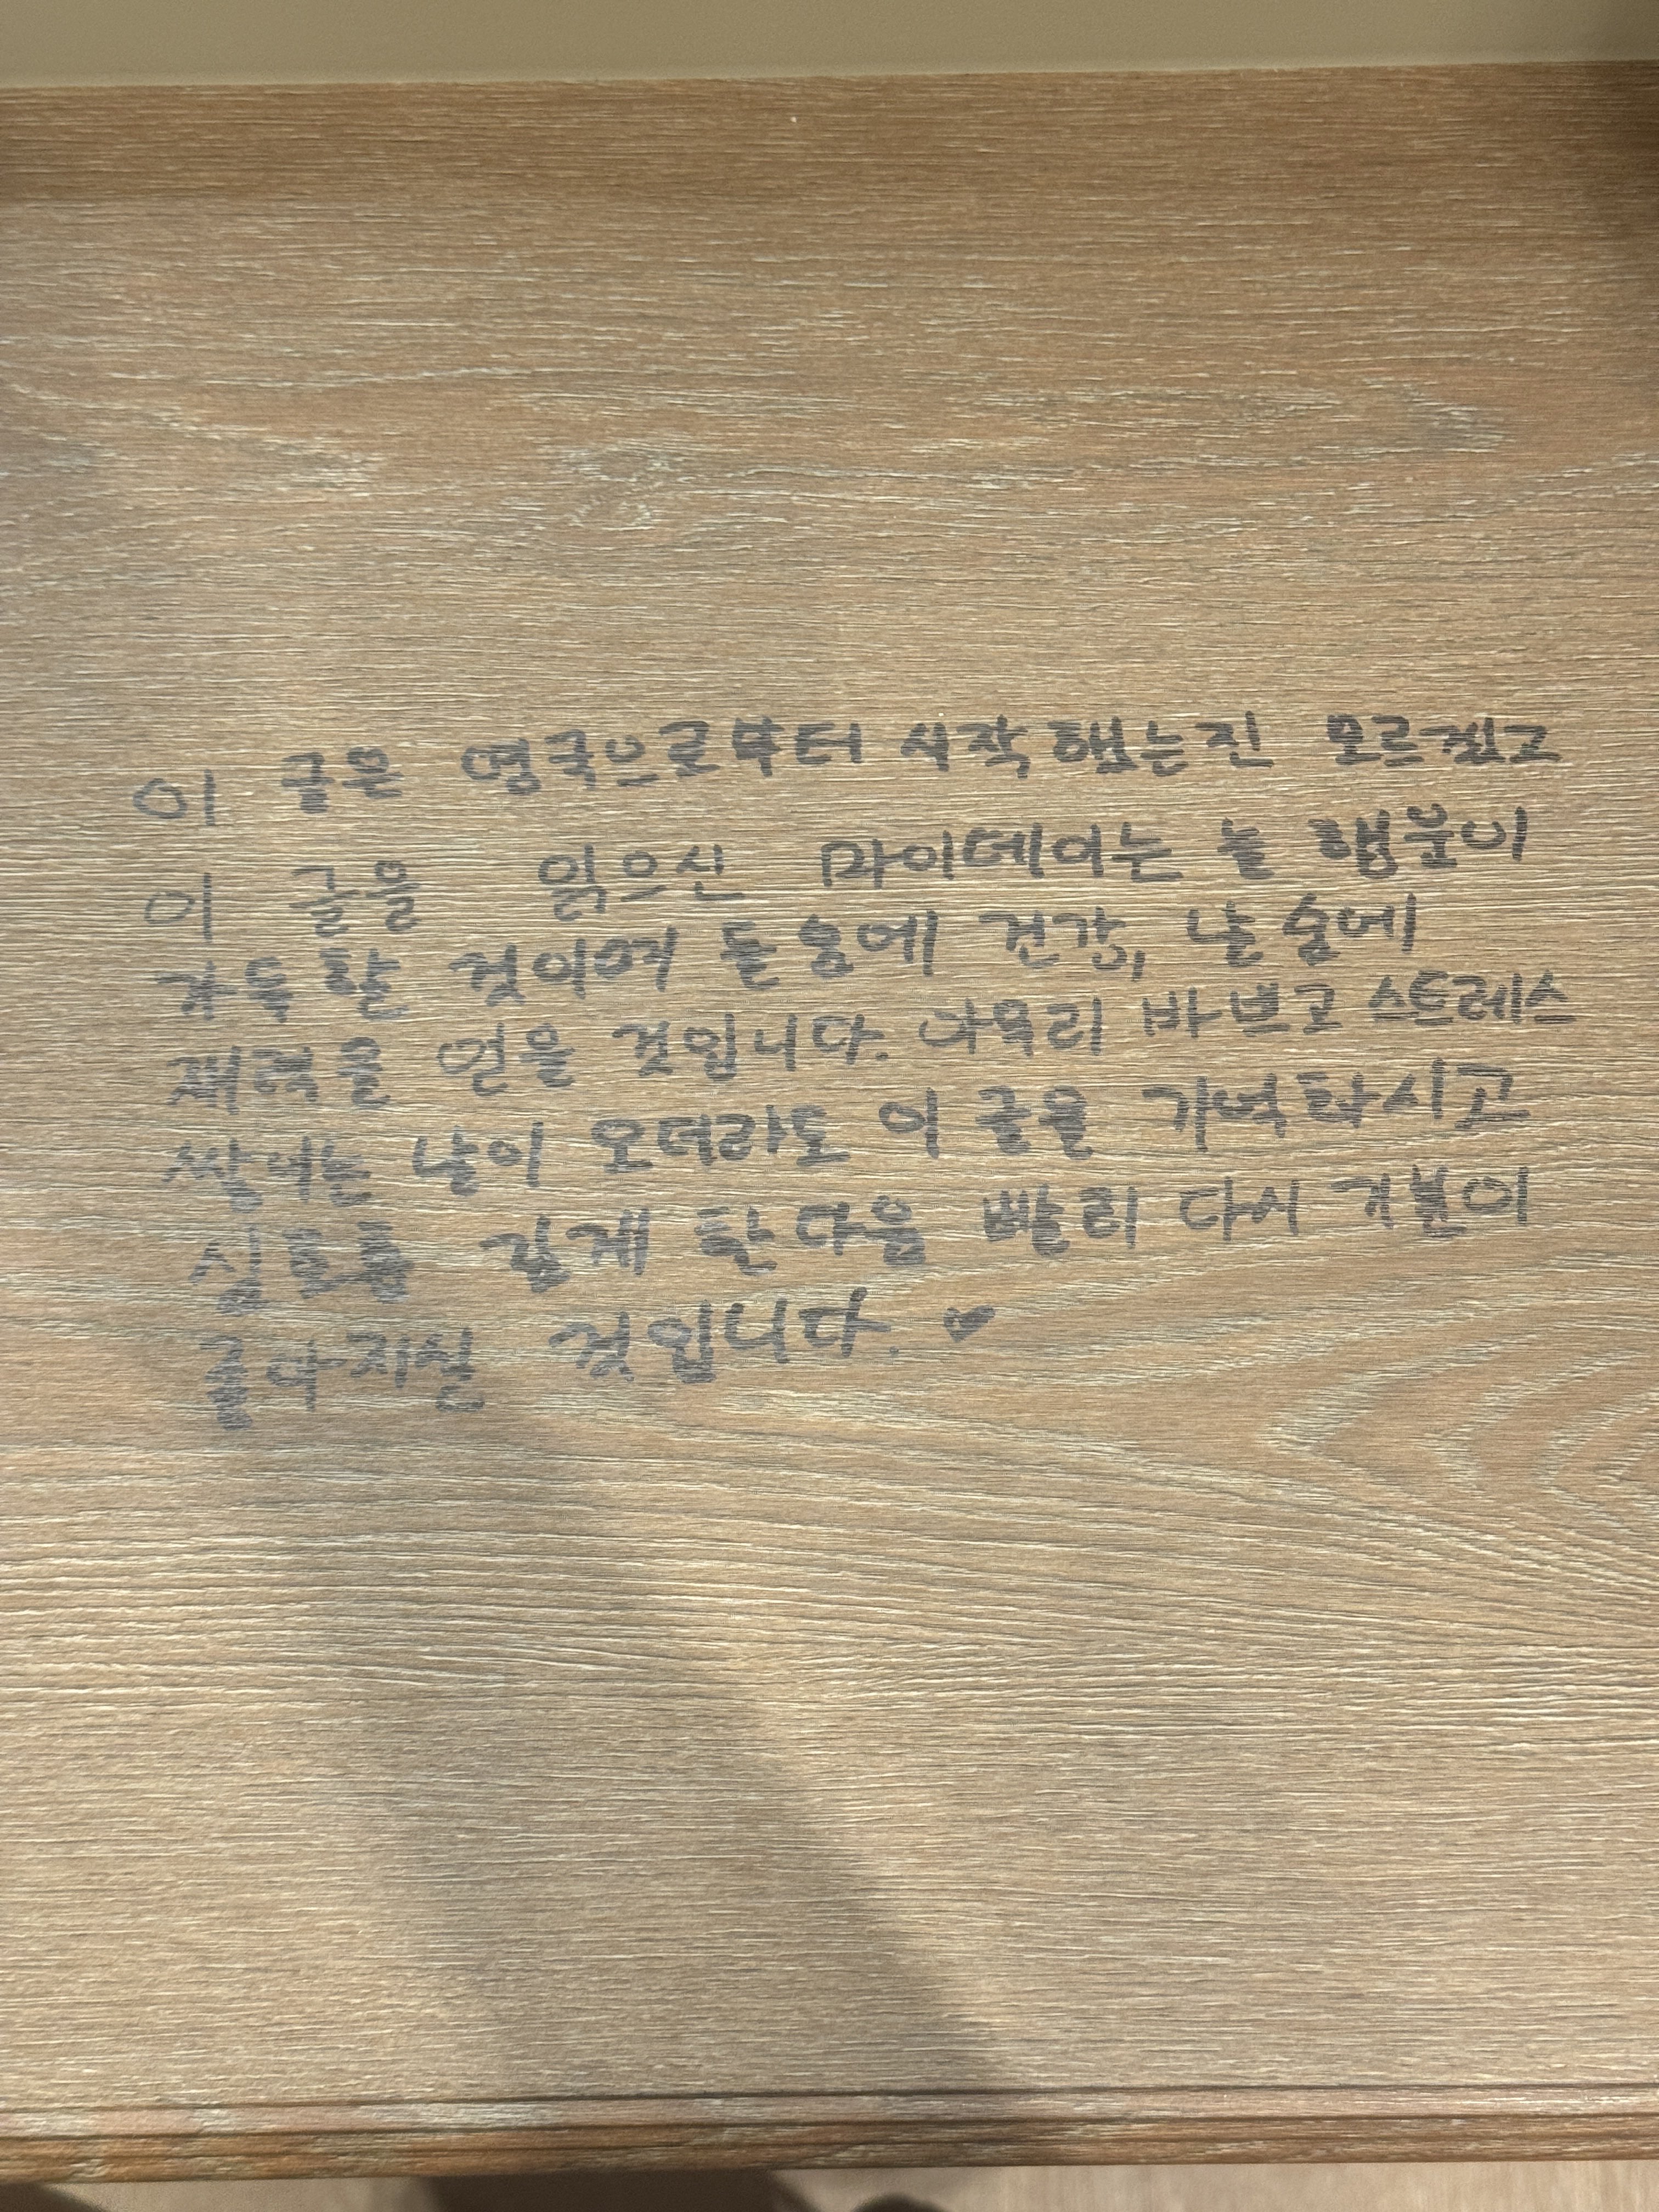 이 글은 영국으로부터 시작했는진 모르겠고
이 글을 읽으신 마이데이는 늘 행운이
가득할 것이며 들숨에 건강, 날숨에
재력을 얻을 것입니다. 아무리 바쁘고 스트레스
쌓이는 날이 오더라도 이 글을 기억하시고
심호흡 깊게 한 다음 빨리 다시 기분이
좋아지실 것입니다. ♥